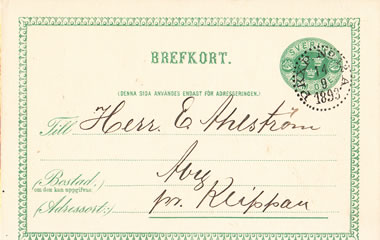 BREFKORT.
SVERIGE
(DENNA SIDA ANVÄNDES ENDAST FÖR ADRESSERINGEN.)
1895
Till Herr. E. Ahlström
Aby
(Bostad.)
om den kan uppgifvas
pr. Klippan
(Adressort:)